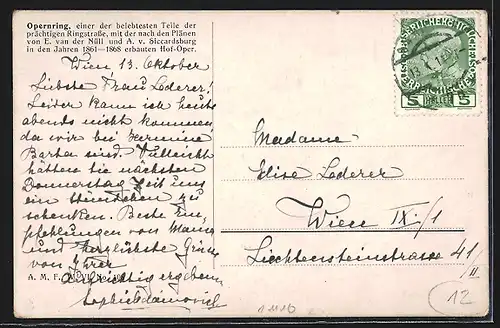 Opernring, einer der belebtesten Teile der
prächtigen Ringstraße, mit der nach den Plänen
von E. van der Nüll und A. v. Siccardsburg
in den Jahren 1861—1868 erbauten Hof-Oper.
Wien 13. Oktober
Liebste Frau Lederer!
Leider kann ich heute
abends nicht kommen,
da wir bei Hermine
Barta sind. Vielleicht
hätten Sie nächsten
Donnerstag Zeit uns
ein Stündchen zu
schenken. Beste Em-
pfehlungen von Mama
und herzlichste Grüsse
von Ihrer
aufrichtig ergebenen
A. M. F.
Madame
Elise Lederer
Wien IX/1
Liechtensteinstrasse 41
/II.
5 HELLER 5
12